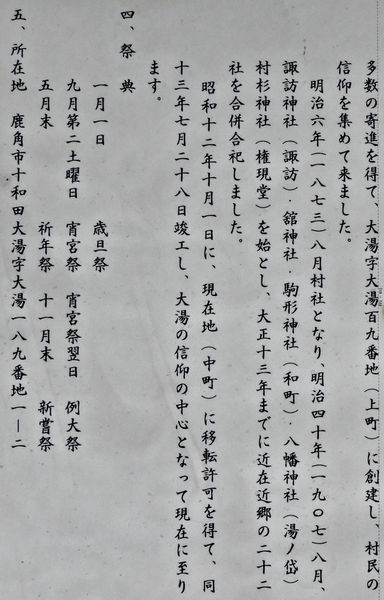 多数の寄進を得て、大湯字大湯百九番地（上町）に創建し、村民の
信仰を集めて来ました。
明治六年（一八七三）八月村社となり、明治四十年（一九〇七）八月、
諏訪神社（諏訪）・舘神社・駒形神社（和町）・八幡神社（湯ノ岱）
村杉神社（権現堂）を始とし、大正十三年までに近在近郷の二十二
社を合併合祀しました。
昭和十二年十月一日に、現在地（中町）に移転許可を得て、同
十三年七月二十八日竣工し、大湯の信仰の中心となって現在に至り
ます。
四、祭典
一月一日 歳旦祭
九月第二土曜日 宵宮祭 宵宮祭翌日 例大祭
五月末 祈年祭 十一月末 新嘗祭
五、所在地 鹿角市十和田大湯字大湯一八九番地一ー二